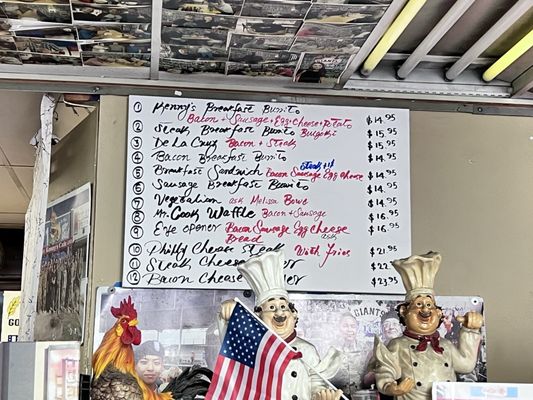 1 Kenny's Breakfast Burrito $14.95
Bacon + Sausage + Egg + Cheese + Potato
2 Steak Breakfast Burrito $15.95
3 De La Cruz Bacon + Steak $15.95
4 Bacon Breakfast Burrito $14.95
Steak +$1
5 Breakfast Sandwich Bacon Sausage Egg Cheese $14.95
6 Sausage Breakfast Burrito $14.95
7 Vegetarian ask Melissa Bowl $14.95
8 Mr. Cook Waffle Bacon + Sausage $16.95
9 Eye opener Bacon Sausage Egg Cheese $16.95
Bread ask
10 Philly Cheese Steak With Fries $21.95
11 Steak Cheese
12 Bacon Cheese $23.95
GIANTS
GO